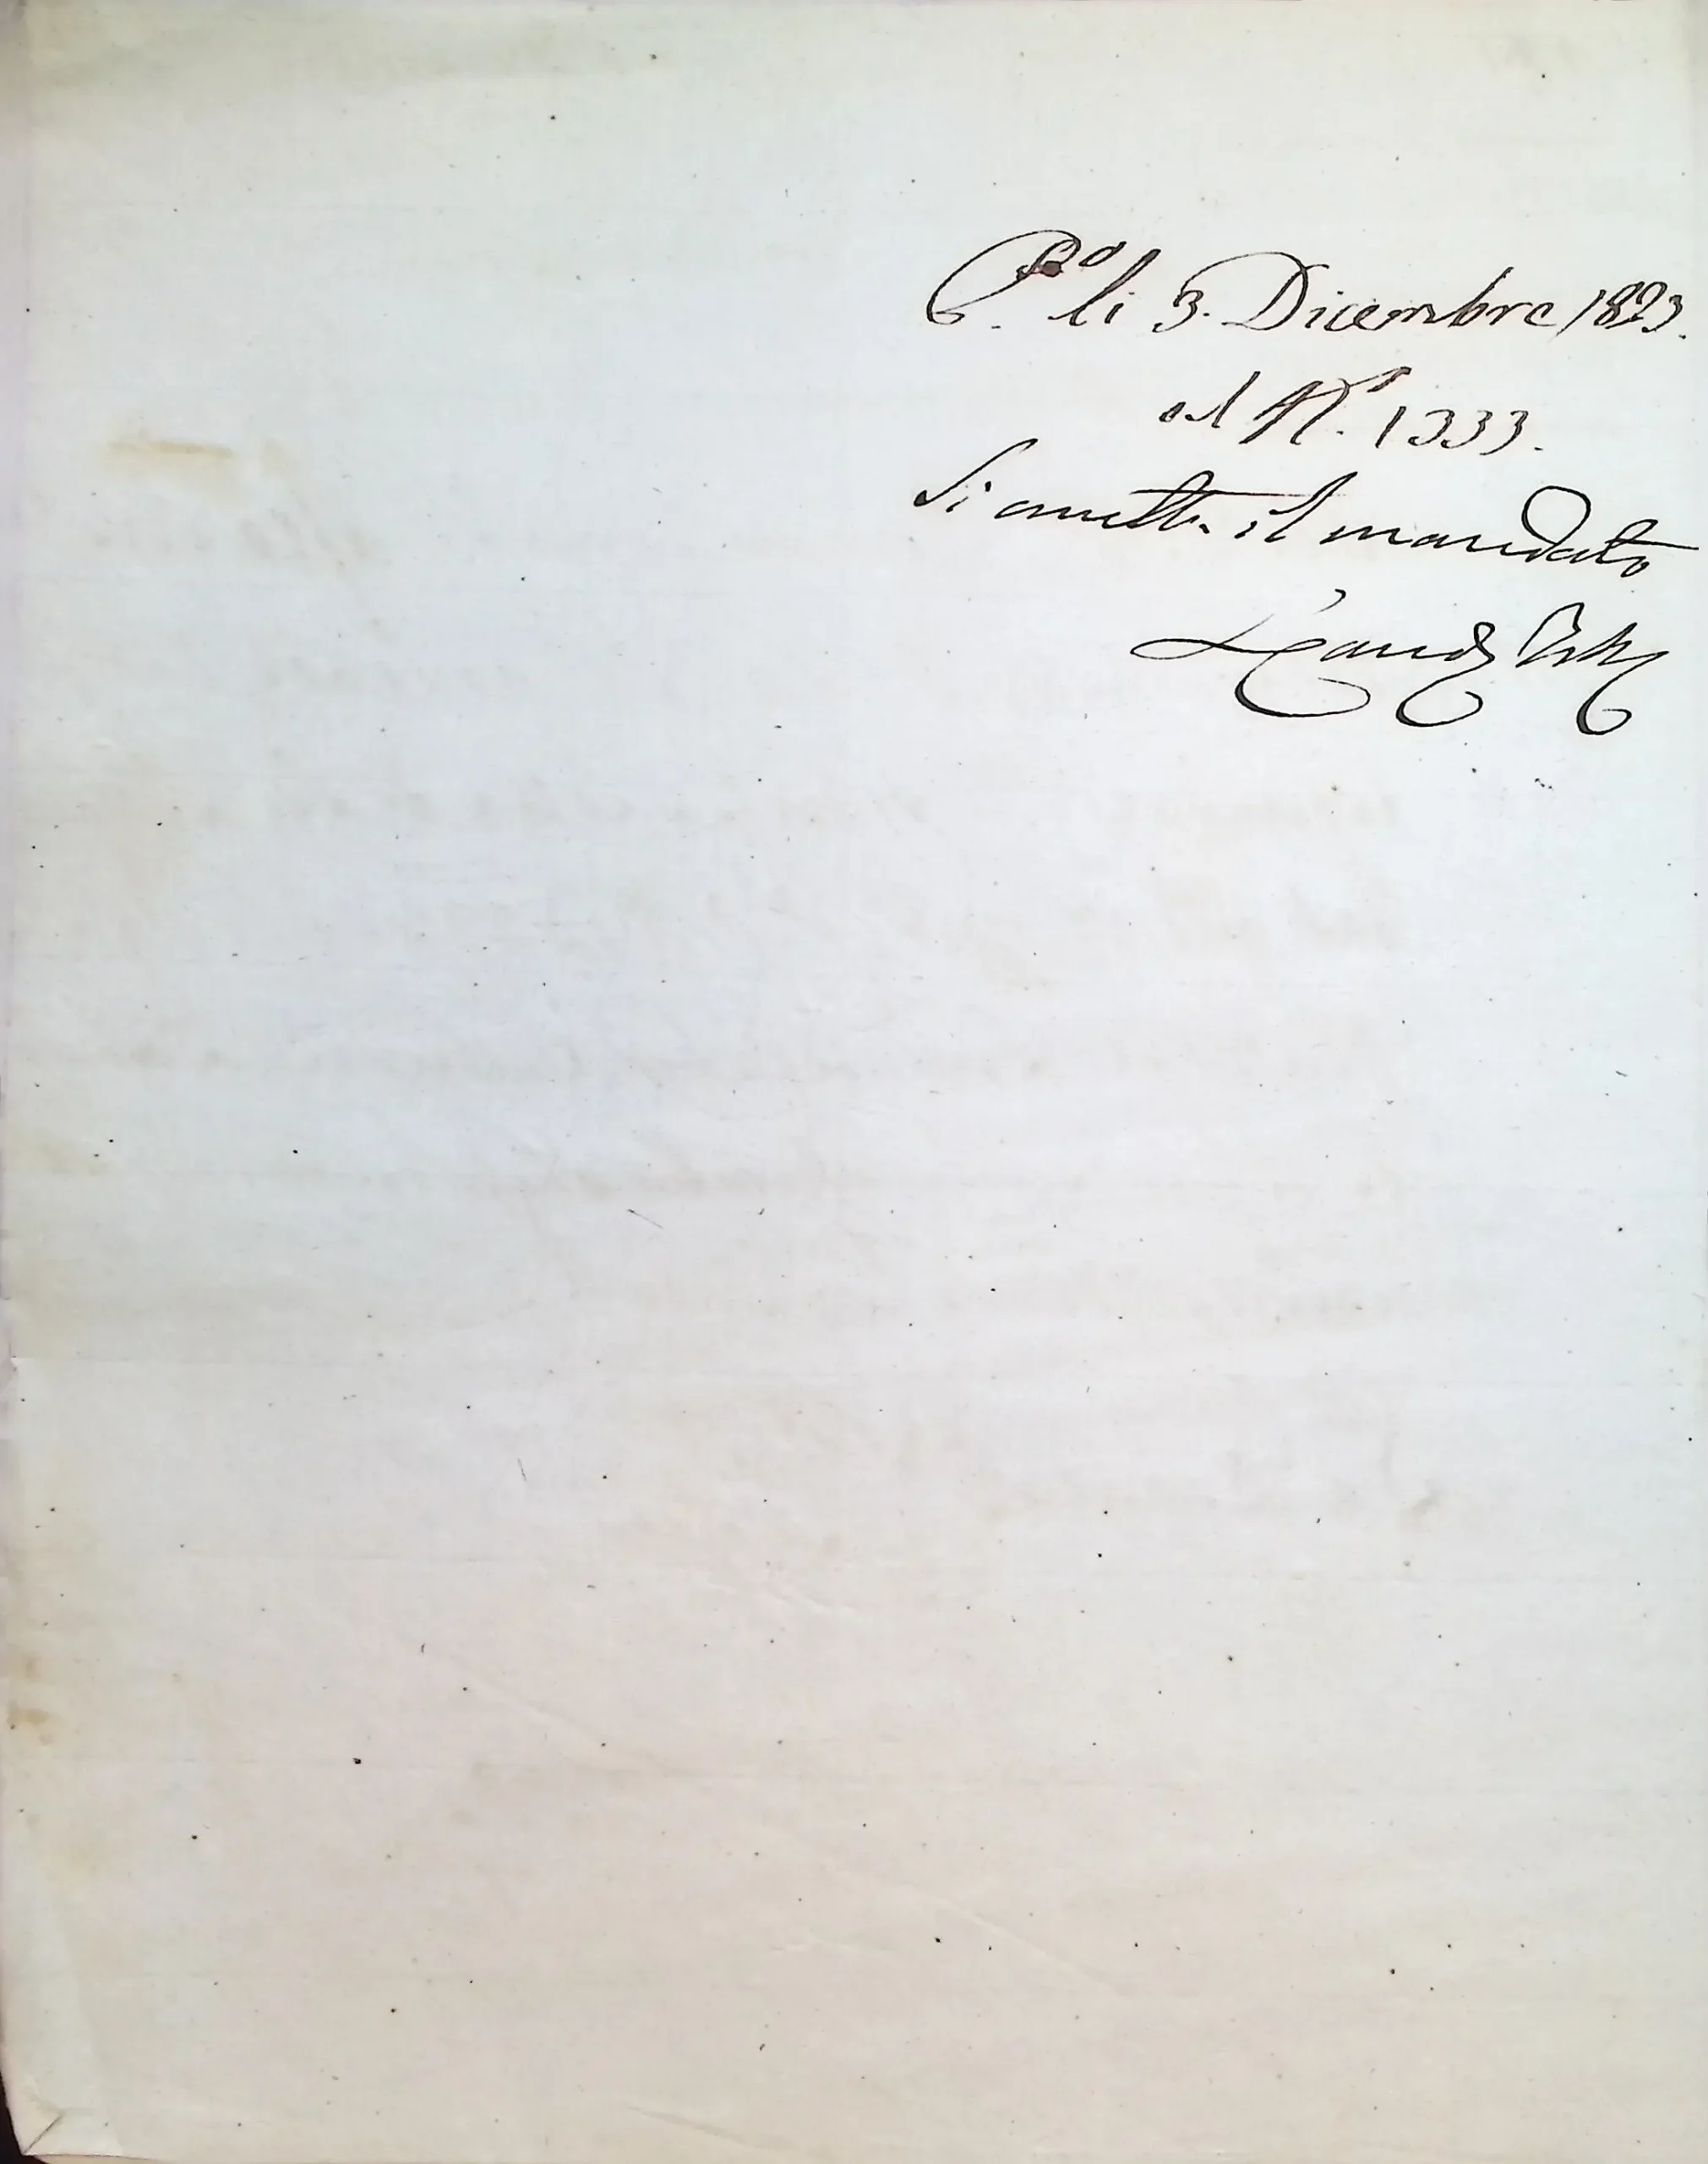 P.to li 3. Dicembre 1823.
al N.o 1333.
Si emetta il mandato